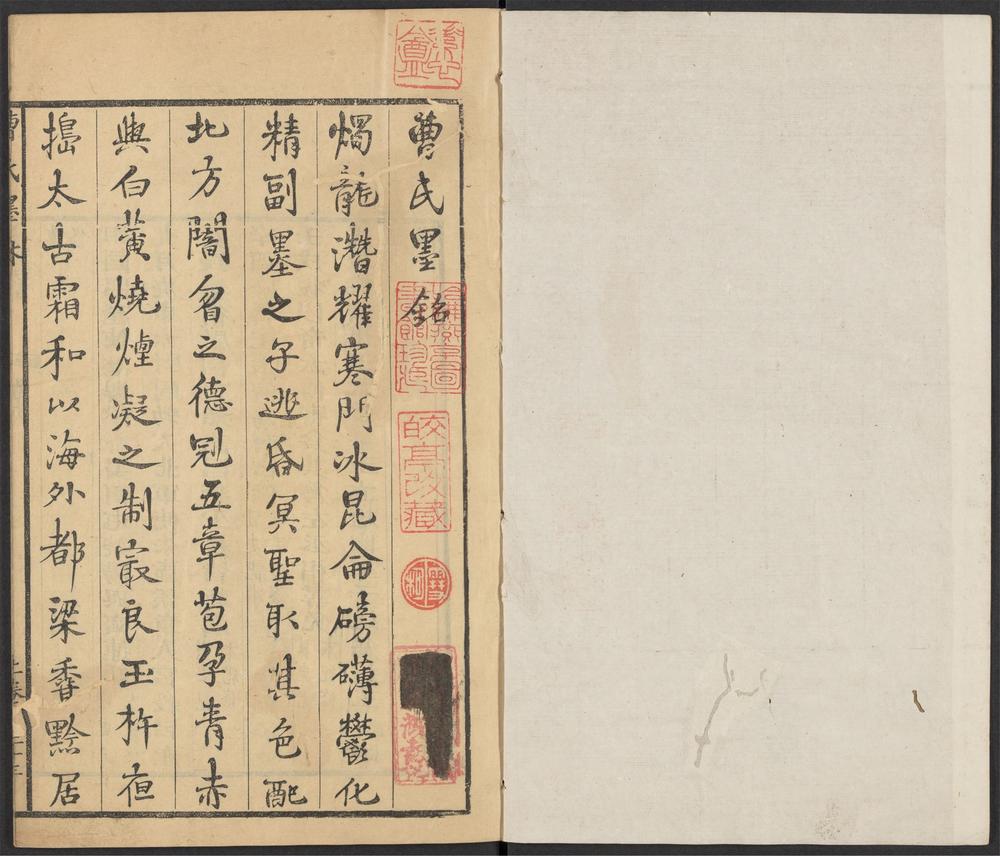 曹氏墨銘
燭龍潛耀寒門冰昆侖磅礴鬱化
精副墨之子逃昏冥聖取其色配
北方闇曶之德冠五章苞孕青赤
與白黃燒煙凝之制冣良玉杵夜
搗太古霜和以海外都梁香黔居
皎亭改藏
曹氏墨林
上卷